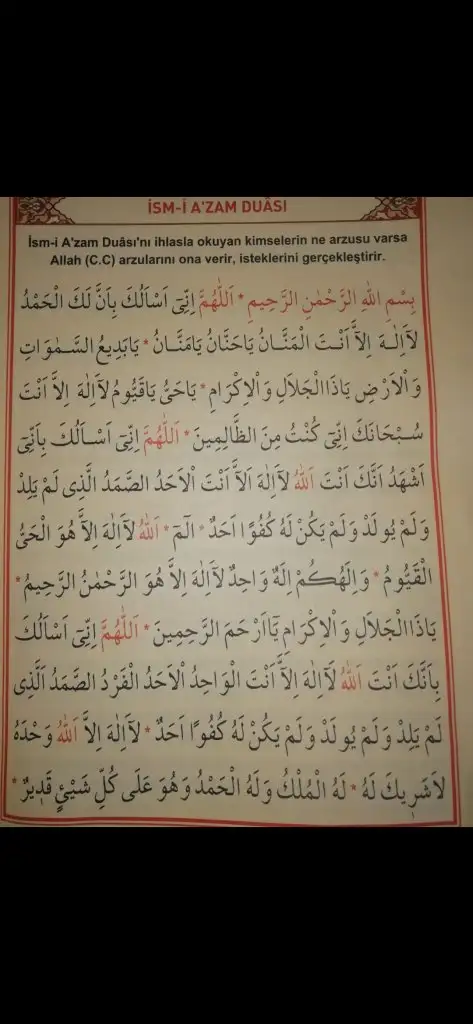 İSM-İ A'ZAM DUÂSI
İsm-i A'zam Duâsı'nı ihlasla okuyan kimselerin ne arzusu varsa
Allah (C.C) arzularını ona verir, isteklerini gerçekleştirir.
بِسْمِ اللّٰهِ الرَّحْمٰنِ الرَّحِيمِ * اَللّٰهُمَّ اِنِّىٓ اَسْاَلُكَ بِاَنَّ لَكَ الْحَمْدُ
لَآاِلٰهَ اِلَّآ اَنْتَ الْمَنَّانُ يَاحَنَّانُ يَامَنَّانُ * يَابَدِيعُ السَّمٰوَاتِ
وَالْاَرْضِ يَاذَاالْجَلَالِ وَالْاِكْرَامِ * يَاحَىُّ يَاقَيُّومُ لَآاِلٰهَ اِلَّا اَنْتَ
سُبْحَانَكَ اِنِّى كُنْتُ مِنَ الظَّالِمِينَ * اَللّٰهُمَّ اِنِّىٓ اَسْاَلُكَ بِاَنِّىٓ
اَشْهَدُ اَنَّكَ اَنْتَ اللّٰهُ لَآاِلٰهَ اِلَّآ اَنْتَ الْاَحَدُ الصَّمَدُ الَّذِى لَمْ يَلِدْ
وَلَمْ يُولَدْ وَلَمْ يَكُنْ لَهُ كُفُوًا اَحَدٌ * الٓمٓ * اَللّٰهُ لَآاِلٰهَ اِلَّا هُوَ الْحَىُّ
الْقَيُّومُ * وَاِلٰهُكُمْ اِلٰهٌ وَاحِدٌ لَآاِلٰهَ اِلَّا هُوَ الرَّحْمٰنُ الرَّحِيمُ *
يَاذَاالْجَلَالِ وَالْاِكْرَامِ يَآاَرْحَمَ الرَّحِمِينَ * اَللّٰهُمَّ اِنِّىٓ اَسْاَلُكَ
بِاَنَّكَ اَنْتَ اللّٰهُ لَآاِلٰهَ اِلَّآ اَنْتَ الْوَاحِدُ الْاَحَدُ الْفَرْدُ الصَّمَدُ اَلَّذِى
لَمْ يَلِدْ وَلَمْ يُولَدْ وَلَمْ يَكُنْ لَهُ كُفُوًا اَحَدٌ * لَآاِلٰهَ اِلَّا اللّٰهُ وَحْدَهُ
لَاشَرِيكَ لَهُ * لَهُ الْمُلْكُ وَلَهُ الْحَمْدُ وَهُوَ عَلَى كُلِّ شَيْئٍ قَدِيرٌ *